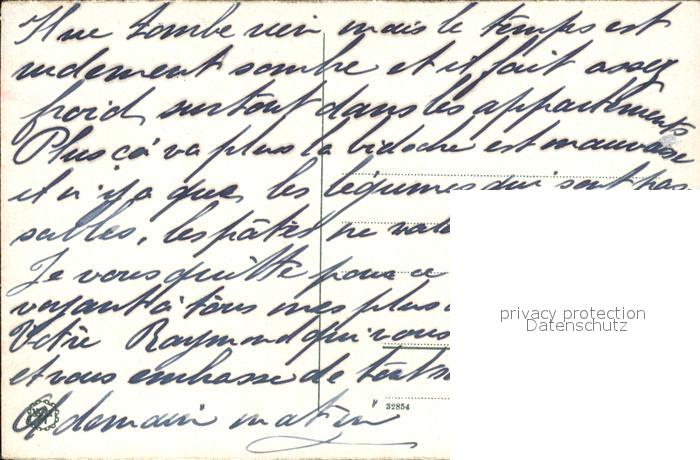 Il ne tombe rien mais le temps est
rudement sombre et il fait assez
froid surtout dans les appartements
Plus ça va plus la bidoche est mauvaise
il n'y a que les légumes qui sont pas
sables, les pâtés ne
Je vous quitte pour ce
voyant à tous mes plus
Votre Raymond qui vous
et vous embrasse de tout
A demain matin
32854
privacy protection
Datenschutz